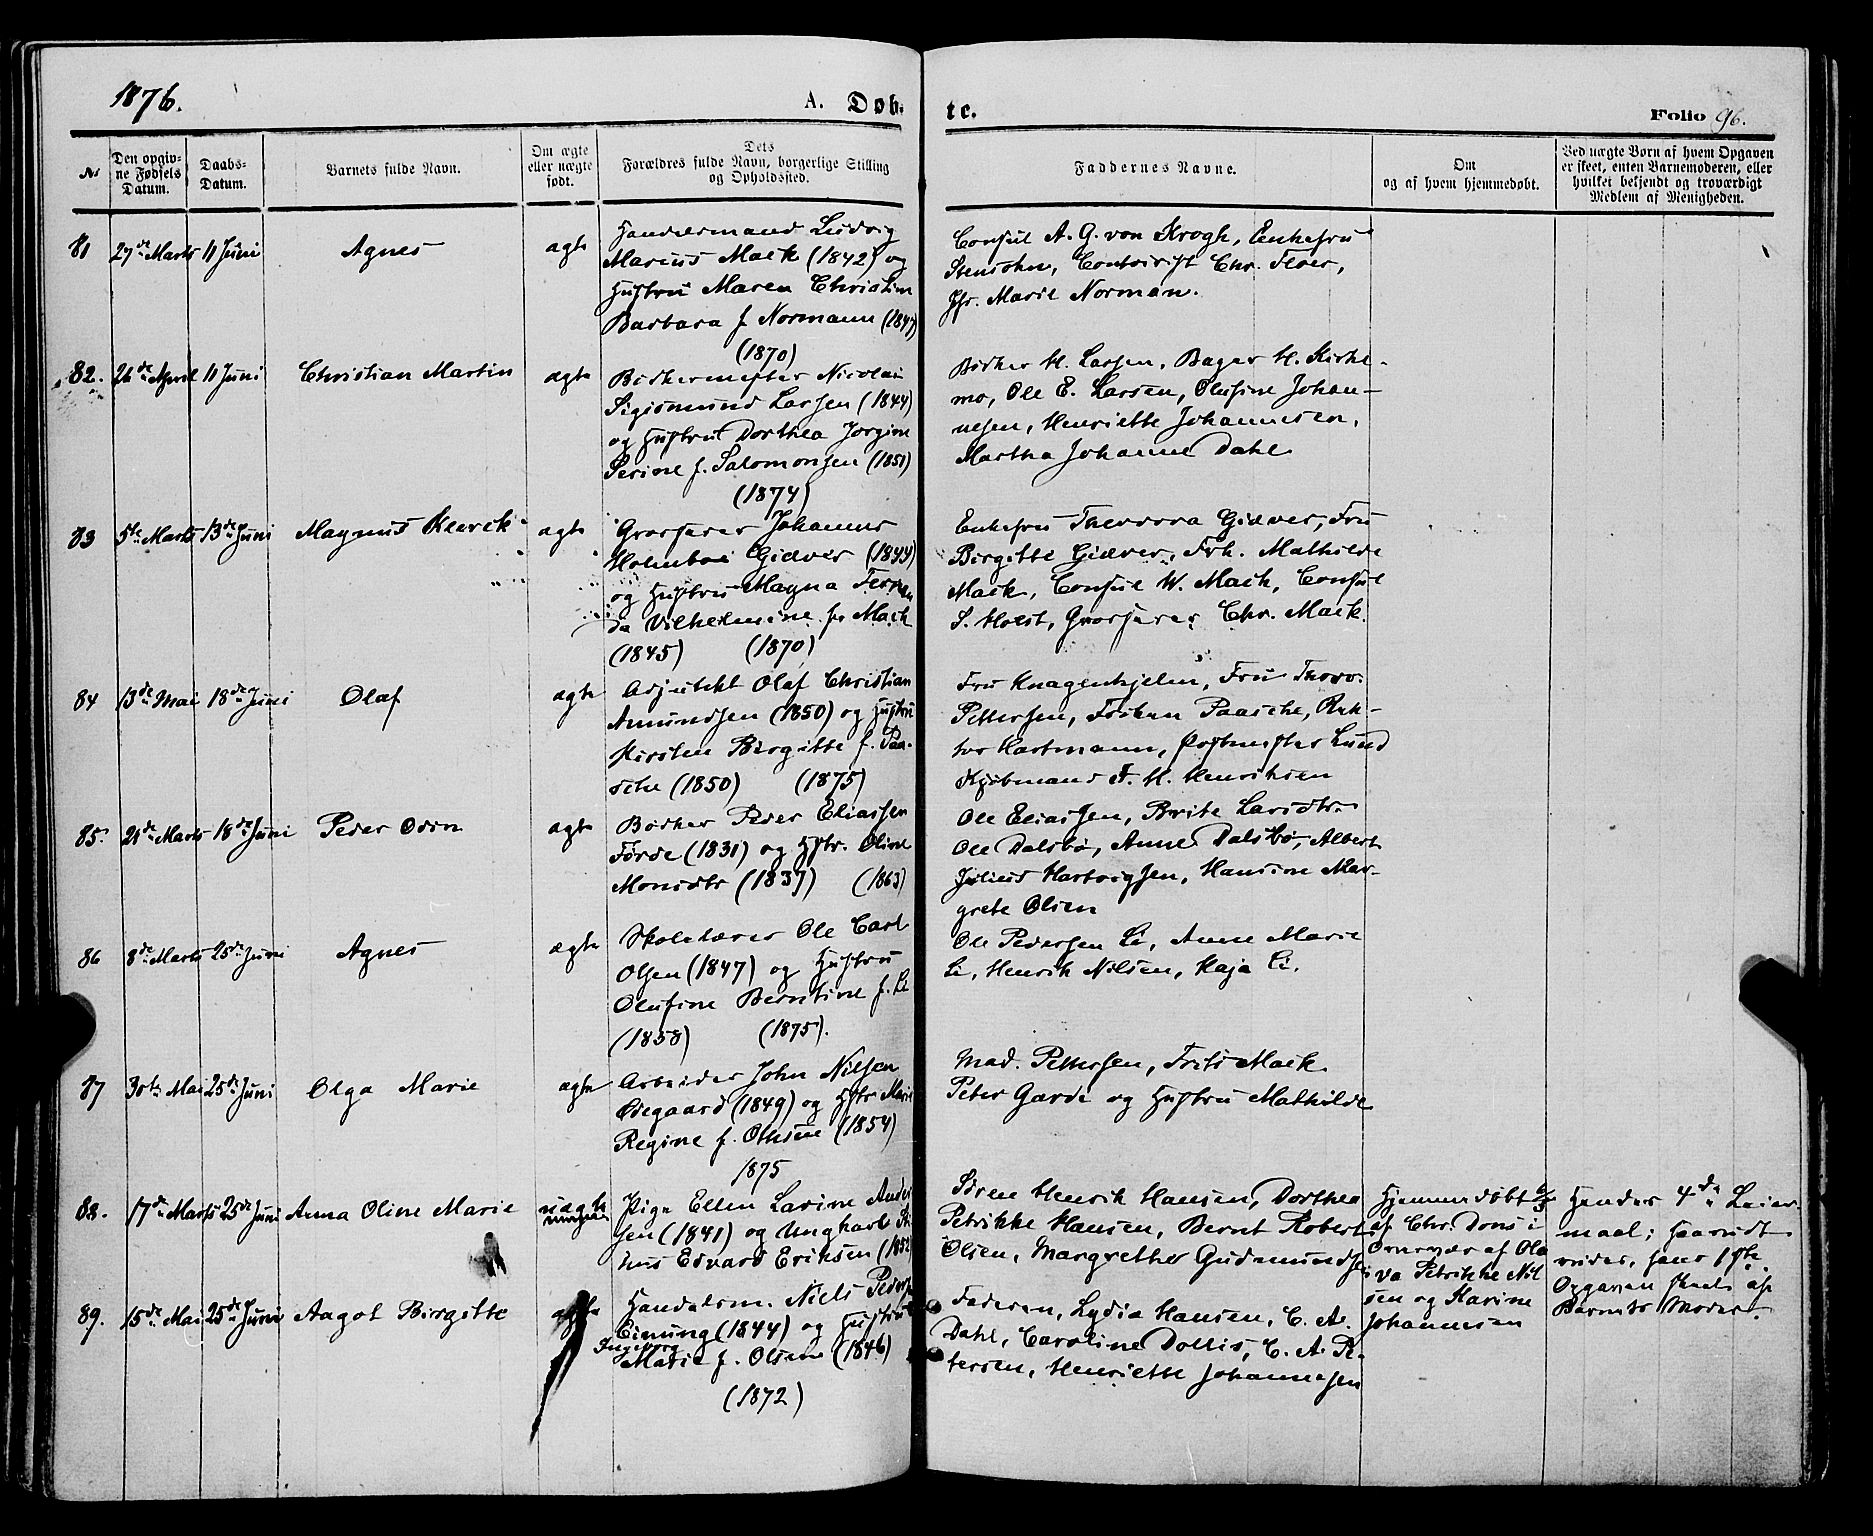 1876.
A. Døb-
te.
Folio 96.
No
Den opgiv-
ne Fødsels
Datum.
Daabs-
Datum.
Barnets fulde Navn.
Om ægte
eller uægte
født.
Dets
Forældres fulde Navn, borgerlige Stilling
og Opholdssted.
Faddernes Navne.
Om
og af hvem hjemmedøbt.
Ved uægte Børn af hvem Opgaven
er skeet, enten Barnemoderen, eller
hvilket bekjendt og troværdigt
Medlem af Menigheden.
81 27de Marts 11 Juni Agnes ægte
Handelsmand Ludvig
Marius Mack (1842) og
Hustru Maren Christine
Barbara f. Normann (1847)
(1870)
Consul A. G. von Krogh, Enkefru
Chr. Floer,
Jfr. Marie Norman.
82. 26de April 11 Juni Christian Martin ægte
Bødkermester Nicolai
Sigismund Larsen (1844)
og Hustru Dorthea Jorgine
Perine f. Salomonsen (1851)
(1874)
Bødker M. Larsen, Bager M. Kirke-
mo, Ole E. Larsen, Olufine Johan-
nesen, Henriette Johannesen,
Martha Johanne Dahl
83 5te Marts 13de Juni Magnus ægte
Grosserer Johannes
Holmboe Giæver (1844)
og Hustru Magna Fernan
da Vilhelmine f. Mack
(1845) (1870)
Enkefru Theodora Giæver, Fru
Birgitte Giæver, Frk. Mathilde
Mack, Consul W. Mack, Consul
S. Holst, Grosserer Chr. Mack.
84 13de Mai 18de Juni Olaf ægte
Adjunkt Olaf Christian
Amundsen (1850) og Hustru
Kirsten Birgitte f. Paa-
sche (1850) (1875)
Fru Knagenhjelm, Fru Thoro.
Pettersen, Frøken Paasche, Rek-
tor Hartmann, Postmester Lund
Kjøbmand F. H. Henriksen
85. 21de Marts 18de Juni Peder Odin ægte
Bødker Peder Eliassen
Førde (1831) og Hstr. Oline
Monsdtr (1837) (1863)
Ole Eliassen, Brite Larsdtr.
Ole Dalsbø, Anne Dalsbø, Albert
Julius Hartvigsen, Hansine Mar-
grete Olsen
86 8de Marts 25de Juni Agnes ægte
Skolelærer Ole Carl
Olsen (1847) og Hustru
Olufine Berntine f. Li
(1858) (1875).
Ole Pedersen Li, Anne Marie
Li, Henrik Nilsen, Kaja Li.
87 30te Mai 25de Juni Olga Marie ægte
Arbeider John Nilsen
Ødegaard (1849) og Hstr Marie
Regine f. Othsen (1854)
1875
Mad. Pettersen, Frits Mack
Peter Garde og Hustru Mathilde
88. 17de Marts 25de Juni Anna Oline Marie uægte
Pige Ellen Lavine Ander
sen (1841) og Ungkarl
Edvard Eriksen (1852)
Søren Henrik Hansen, Dorthea
Petrikke Hansen, Bernt Robert
Olsen, Margrethe Gudmundsen
Hjemmedøbt
af Chr. Dons i
af Ola
va Petrikke Nil
sen og Karine
Johannesen
Hendes 4de Leier-
maal;
Opgaven skeet af
Barnets Moder.
89. 15de Mai 25de Juni Aagot Birgitte ægte
Handelsm. Niels Peder
(1844) og Hustru
Ingeborg
Marie f. Olsen (1846)
(1872)
Faderen, Lydia Hansen, C. A.
Dahl, Caroline Dollis, C. A. Pe-
tersen, Henriette Johannesen